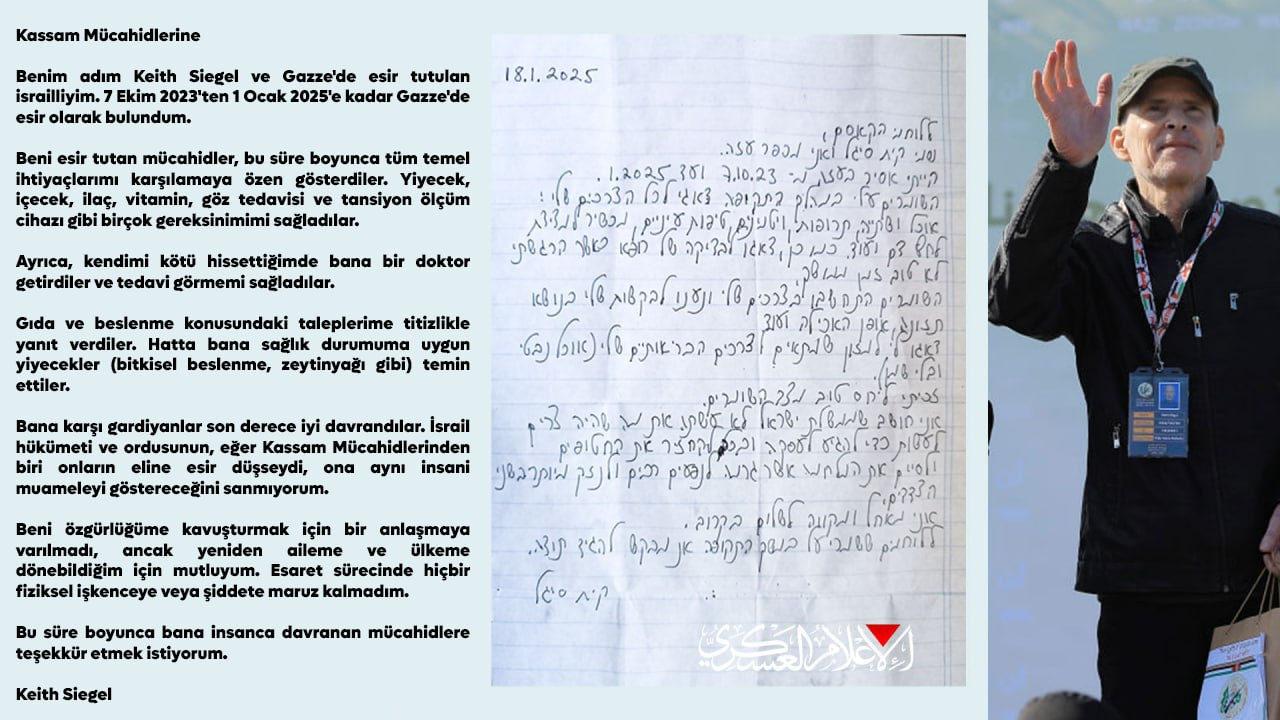 Kassam Mücahidlerine
Benim adım Keith Siegel ve Gazze'de esir tutulan
israilliyim. 7 Ekim 2023'ten 1 Ocak 2025'e kadar Gazze'de
esir olarak bulundum.
Beni esir tutan mücahidler, bu süre boyunca tüm temel
ihtiyaçlarımı karşılamaya özen gösterdiler. Yiyecek,
içecek, ilaç, vitamin, göz tedavisi ve tansiyon ölçüm
cihazı gibi birçok gereksinimimi sağladılar.
Ayrıca, kendimi kötü hissettiğimde bana bir doktor
getirdiler ve tedavi görmemi sağladılar.
Gıda ve beslenme konusundaki taleplerime titizlikle
yanıt verdiler. Hatta bana sağlık durumuma uygun
yiyecekler (bitkisel beslenme, zeytinyağı gibi) temin
ettiler.
Bana karşı gardiyanlar son derece iyi davrandılar. İsrail
hükümeti ve ordusunun, eğer Kassam Mücahidlerinden
biri onların eline esir düşseydi, ona aynı insani
muameleyi göstereceğini sanmıyorum.
Beni özgürlüğüme kavuşturmak için bir anlaşmaya
varılmadı, ancak yeniden aileme ve ülkeme
dönebildiğim için mutluyum. Esaret sürecinde hiçbir
fiziksel işkenceye veya şiddete maruz kalmadım.
Bu süre boyunca bana insanca davranan mücahidlere
teşekkür etmek istiyorum.
Keith Siegel
18.1.2025
ללוחמי הקאסם,
שמי קית סיגל ואני מכפר עזה.
הייתי אסיר בעזה מ- 7.10.23 ועד 1.2025.
השומרים עלי במהלך התקופה דאגו לכל הצרכים שלי:
אוכל ושתייה, תרופות, ויטמינים, טיפות עיניים, מכשיר למדידת
לחץ דם ועוד. כמו כן, דאגו לבדיקה של רופא כאשר הרגשתי
לא טוב זמן ממושך.
השומרים התחשבו בצרכים שלי ונענו לבקשות שלי בנושא
תזונה, אופן האכילה ועוד.
דאגו לי למזון שמתאים לצרכים הבריאותיים שלי (אוכל נבטי
ובלי שמן).
זכיתי ליחס טוב מצד השומרים.
אני חושב שממשלת ישראל לא עשתה את מה שהיה צריך
לעשות כדי להגיע לעסקה ובכך להחזיר את החטופים
ולסיים את המלחמה אשר גרמה לנפגעים רבים ולנזק מוטרד בשני
הצדדים.
אני מאחל ומקווה לשלום בקרוב.
ללוחמים ששמרו עלי במשך התקופה אני מבקש להגיד תודה.
קית סיגל
الإعلام العسكري